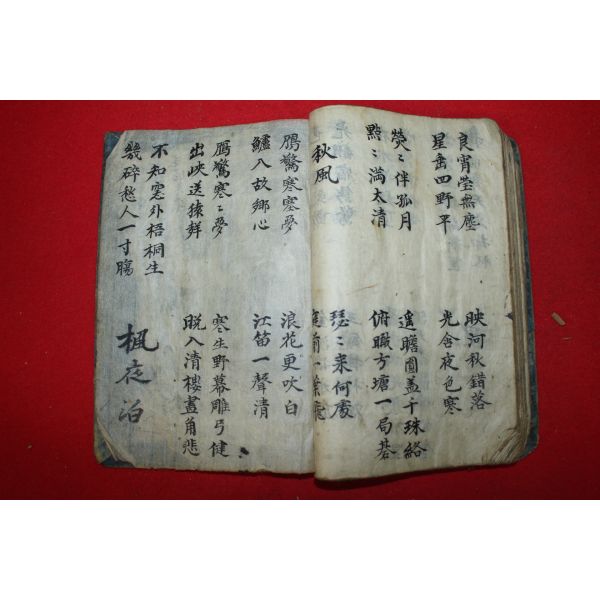 良宵瑩無塵
星垂四野平
映河秋錯落
光含夜色寒
熒〻伴孤月
點〻滿太清
遥瞻圓盖千珠絡
俯職方塘一局碁
秋風
瑟〻来何處
前一葉
鴈驚寒塞夢
鱸入故鄉心
浪花更吹白
江笛一聲清
鴈驚寒〻夢
出峽送猿群
寒生野幕雕弓健
脱入清樓畫角悲
不知窓外梧桐生
幾碎愁人一寸膓
楓夜泊